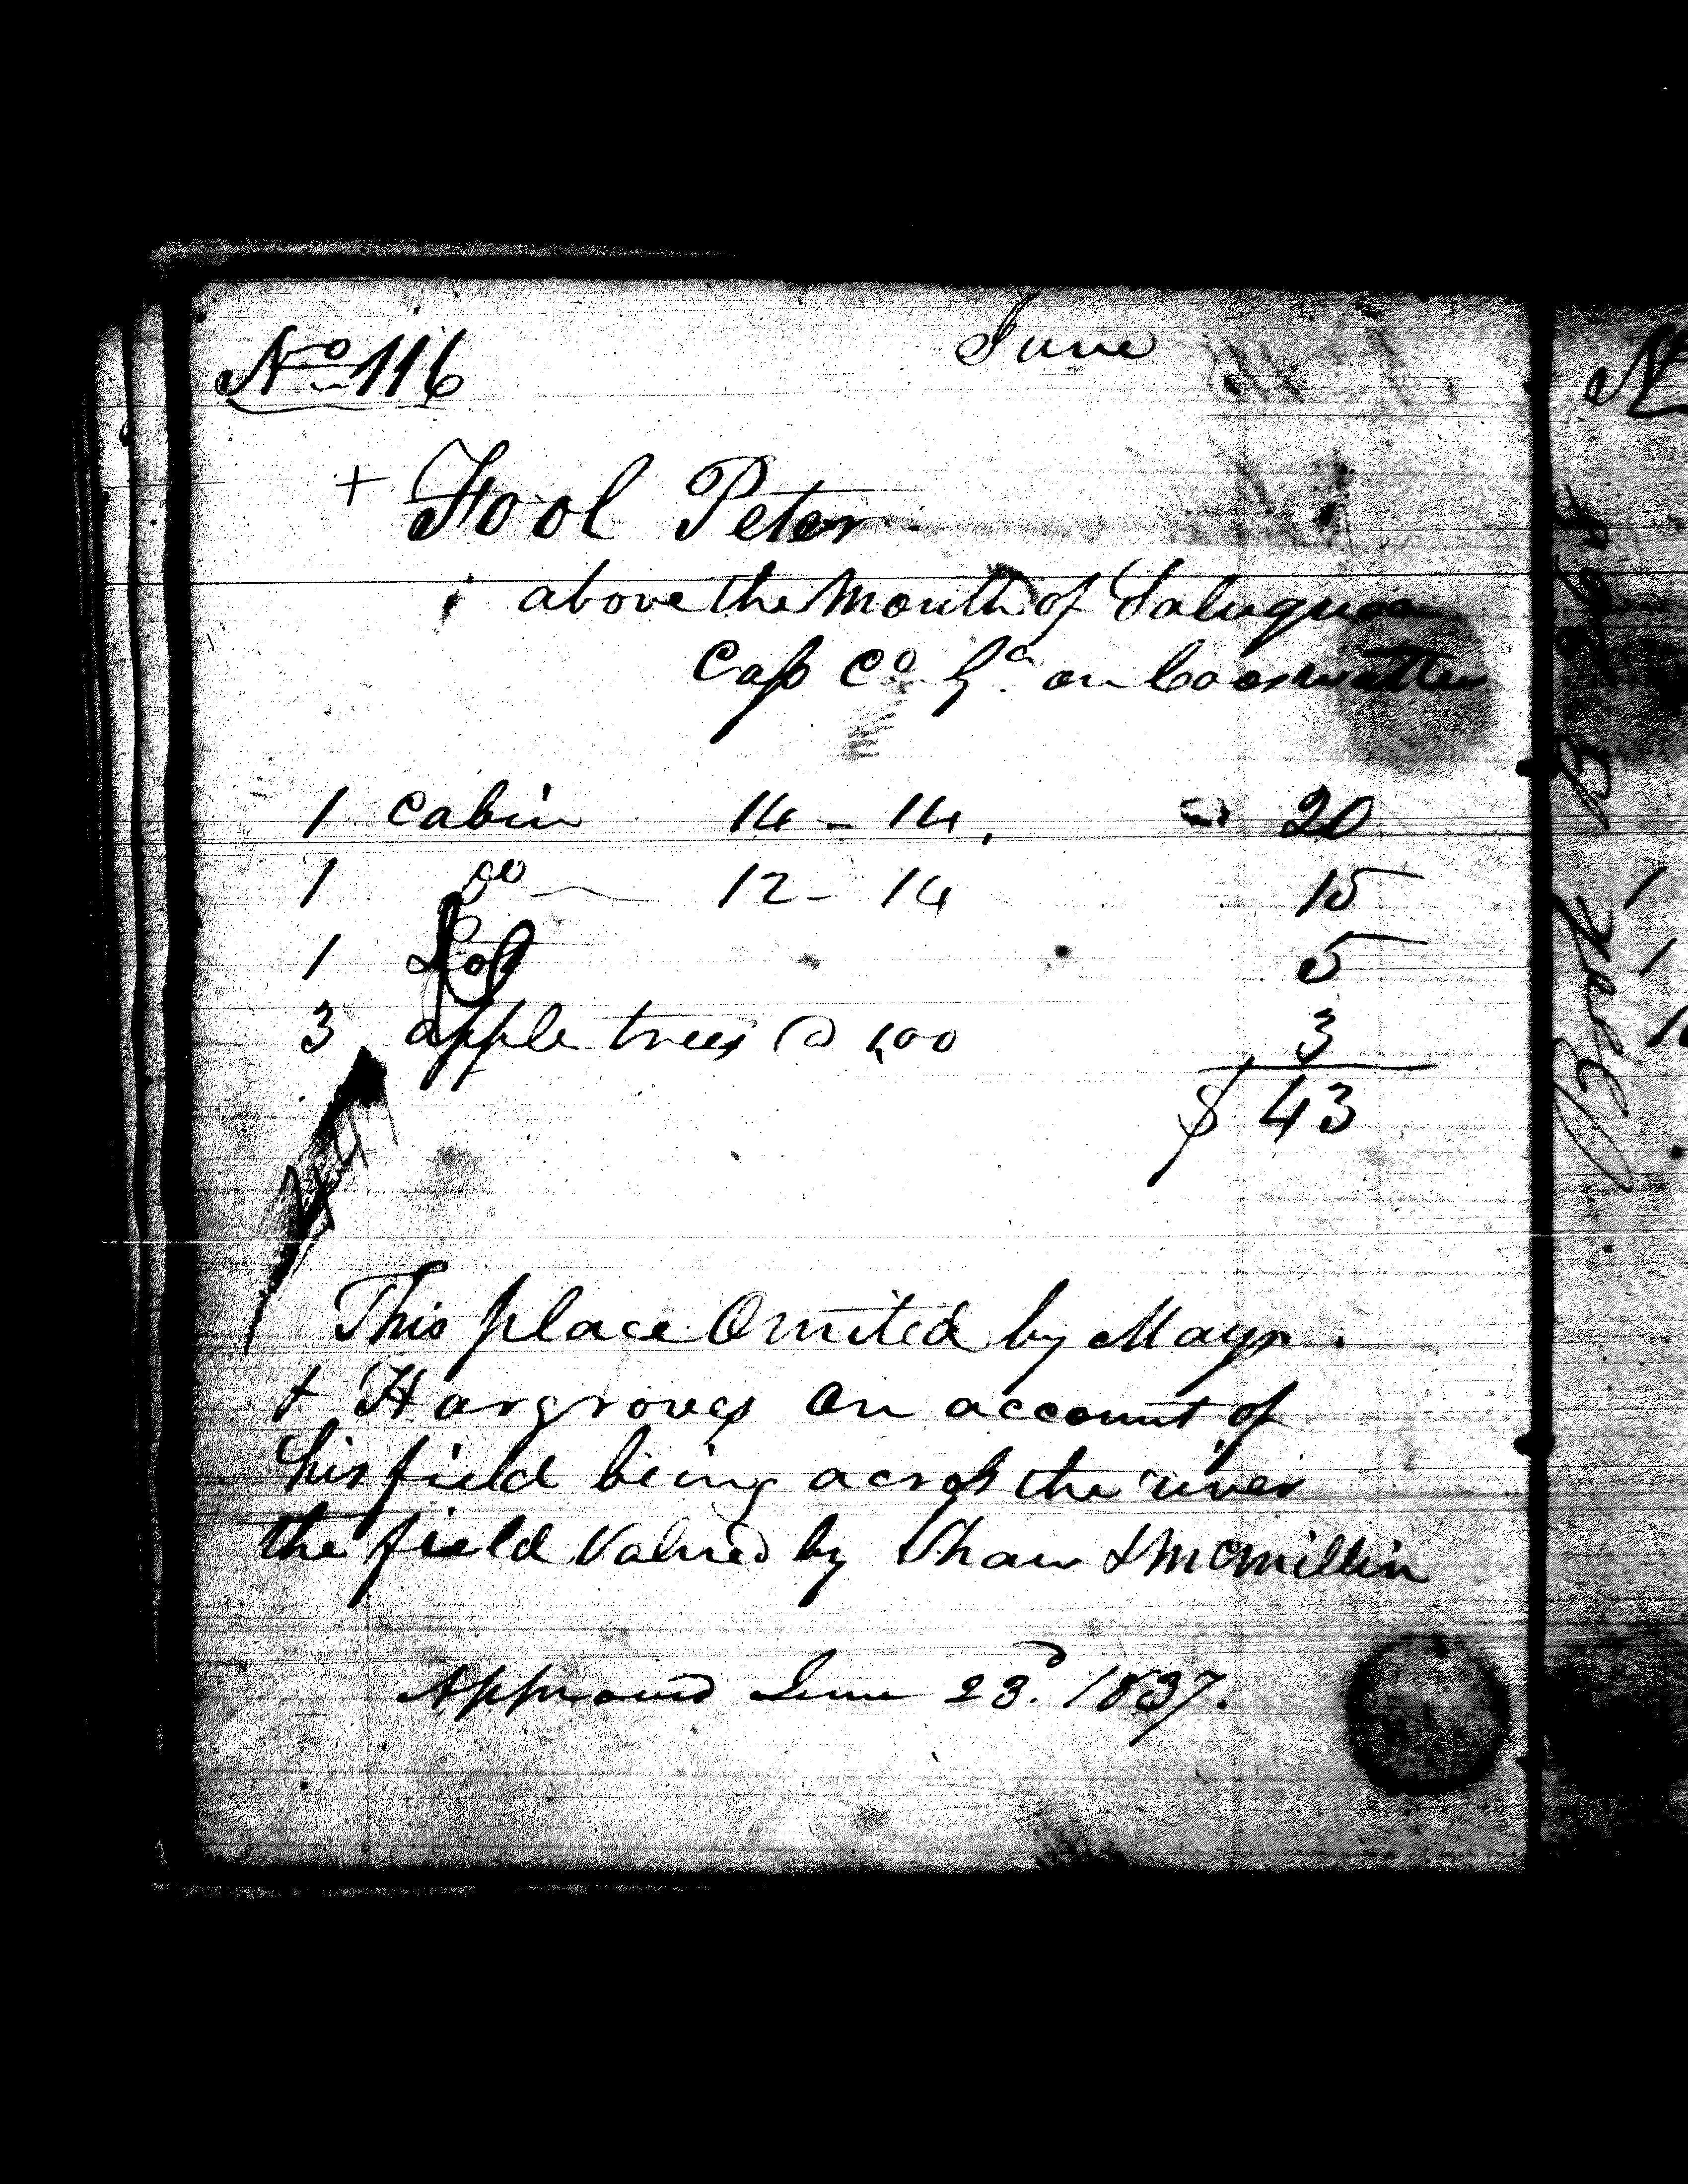 June
No 116
+ Fool Peter
above the Mouth of Saluquoa
Cass Co. Ga. on Cooswattee
1 Cabin 14 - 14. 20
1 Do 12 - 14 15
1 Lot 5
3 apple trees @ 1,00 3
$ 43
This place Omited by Mays
+ Hargroves on account of
his field being across the river
the field Valued by Shaw & McMillin
Approved June 23d. 1837.